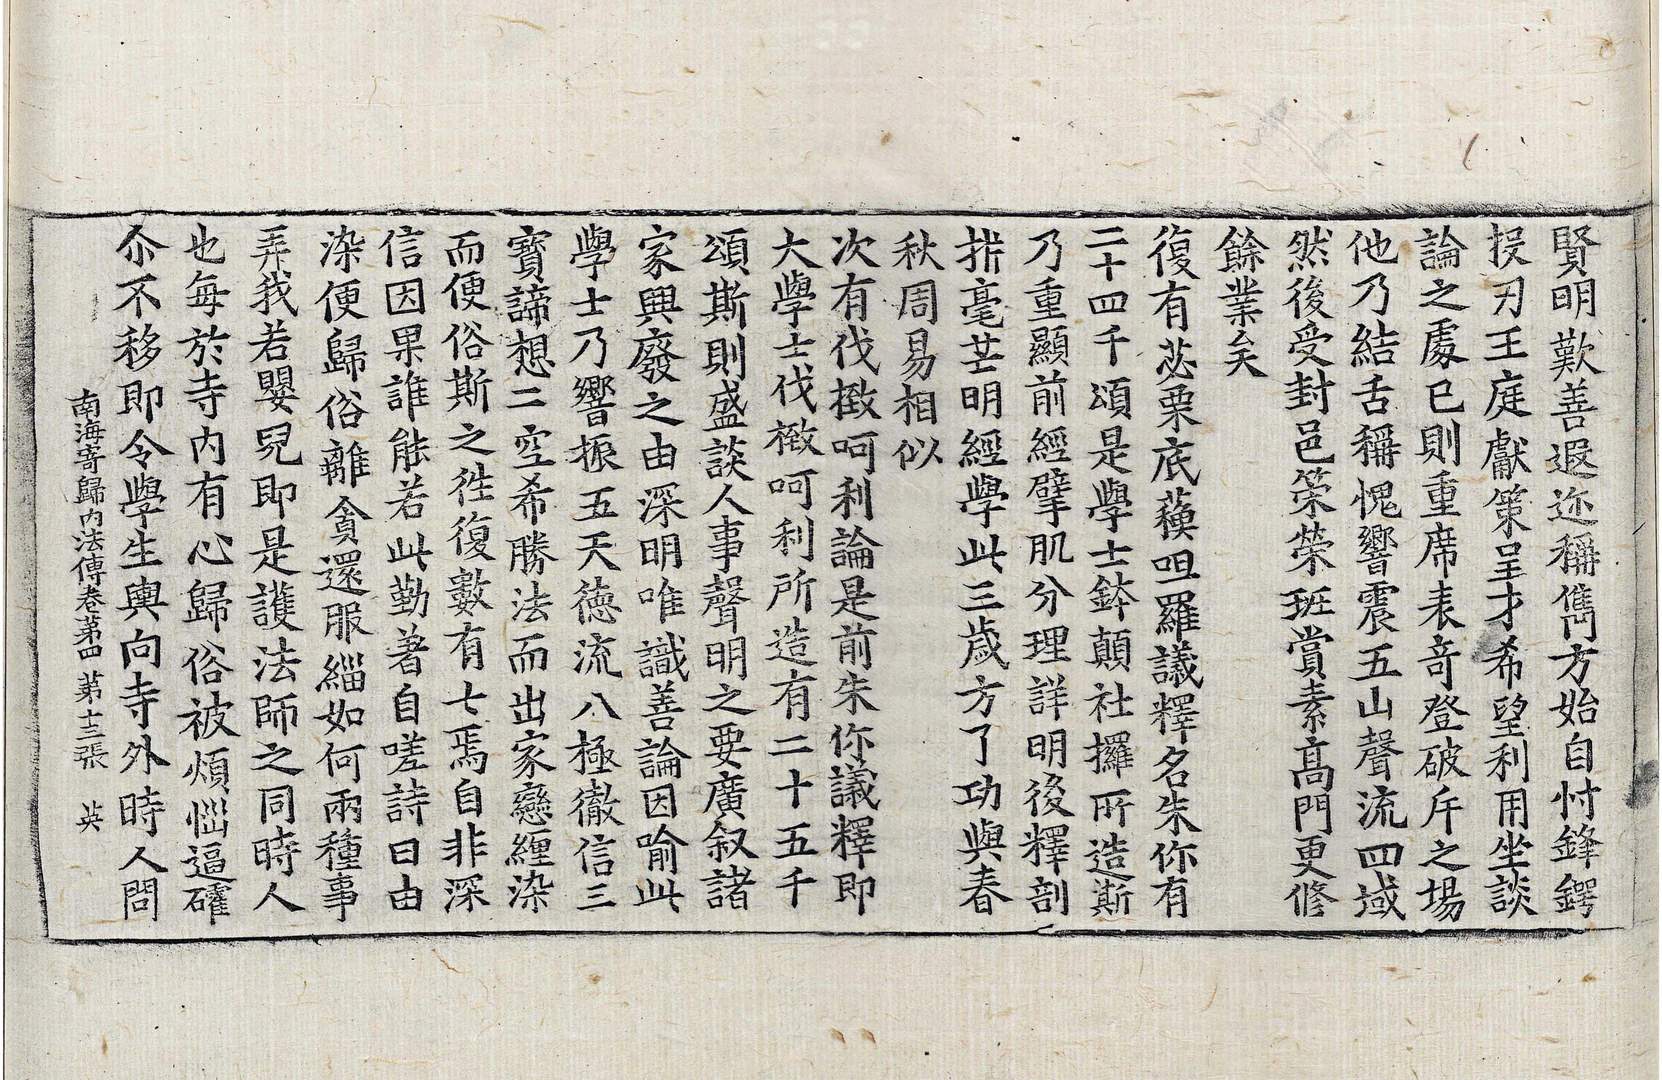 賢明歎善遐迩稱雋方始自忖鋒鍔
投刃王庭獻策呈才希望利用坐談
論之處已則重席表竒登破斥之場
他乃結舌稱愧響震五山聲流四域
然後受封邑策榮班賞素髙門更修
餘業矣
復有苾栗底蘓呾羅議釋名朱你有
二十四千頌是學士鉢顛社攞所造斯
乃重顯前經擘肌分理詳明後釋剖
㭊毫芒明經學此三歳方了功與春
秋周易相似
次有伐㨖呵利論是前朱你議釋即
大學士伐㨖呵利所造有二十五千
頌斯則盛談人事聲明之要廣叙諸
家興廢之由深明唯識善論因喻此
學士乃響振五天德流八極徹信三
寳諦想二空希勝法而出家戀纒染
而便俗斯之徃復數有七焉自非深
信因果誰能若此勤著自嗟詩曰由
染便歸俗離貪還服緇如何兩種事
弄我若嬰兒即是護法師之同時人
也每於寺内有心歸俗被煩惱逼確
尒不移即令學生輿向寺外時人問
南海寄歸内法傳卷苐四 第十三張 英